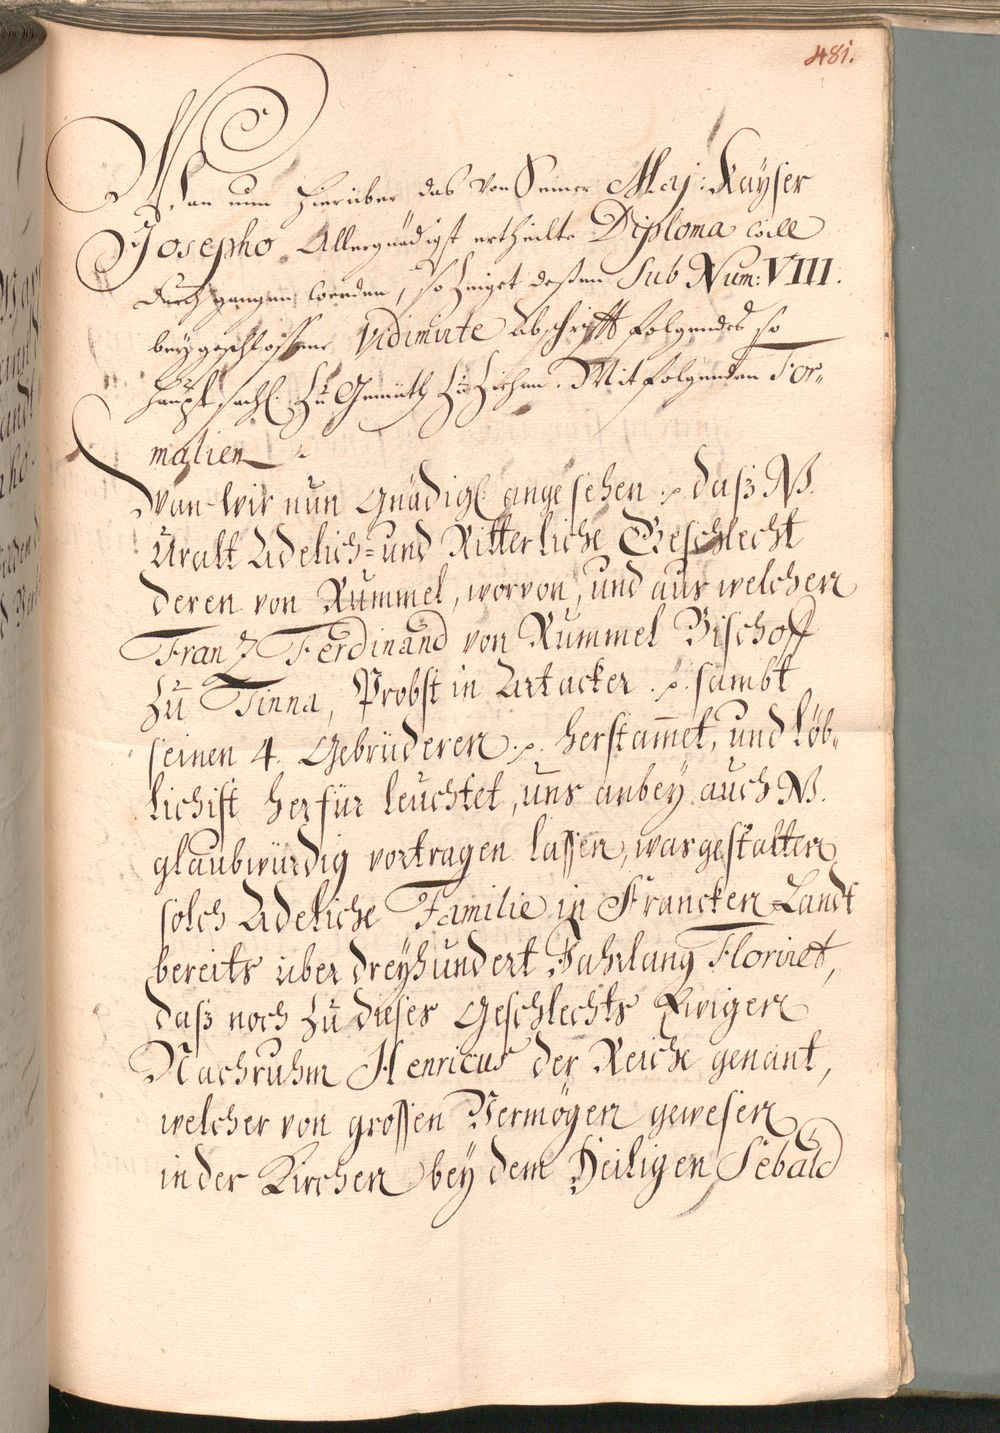 481.
Wan nun hierüber das von Seiner Maj: Kayser
Josepho Allergnädigst ertheilte Diploma will
durchgangen werden, so zeiget deßen Sub Num: VIII.
beygeschlossene Vidimirte abschrifft folgendes so
hauptsachl. zu Gemüth zu ziehen. Mit folgenden For-
malien
Wan Wir nun Gnädigl: angesehen .p. daß N.
Uralt Adelich- und Ritterliche Geschlecht
deren von Rummel, worvon, und aus welchen
Frantz Ferdinand von Rummel Bischoff
zu Tinna, Probst in Artacker .p. sambt
seinen 4. Gebrüderen .p. herstammet, und löb-
lichist herfür leuchtet, uns anbey auch N.
glaubwürdig vortragen lassen, wasgestalten
solch Adeliche Familie in Francken Landt
bereits über dreyhundert Jahrlang Floriret,
daß noch zu dieses Geschlechts Ewigen
Nachruhm Henricus der Reiche genant,
welcher von grossen Vermögen gewesen
in der Kirchen bey dem Heiligen Sebald